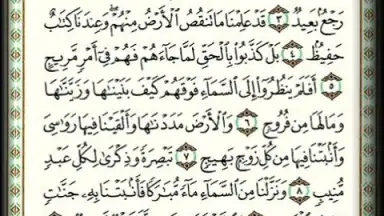 رَجْعٌۢ بَعِيدٌ ٣ قَدْ عَلِمْنَا مَا تَنقُصُ ٱلْأَرْضُ مِنْهُمْ ۖ وَعِندَنَا كِتَٰبٌ
حَفِيظٌۢ ٤ بَلْ كَذَّبُوا۟ بِٱلْحَقِّ لَمَّا جَآءَهُمْ فَهُمْ فِىٓ أَمْرٍ مَّرِيجٍ
٥ أَفَلَمْ يَنظُرُوٓا۟ إِلَى ٱلسَّمَآءِ فَوْقَهُمْ كَيْفَ بَنَيْنَٰهَا وَزَيَّنَّٰهَا
وَمَا لَهَا مِن فُرُوجٍ ٦ وَٱلْأَرْضَ مَدَدْنَٰهَا وَأَلْقَيْنَا فِيهَا رَوَٰسِىَ
وَأَنۢبَتْنَا فِيهَا مِن كُلِّ زَوْجٍۭ بَهِيجٍ ٧ تَبْصِرَةً وَذِكْرَىٰ لِكُلِّ عَبْدٍ
مُّنِيبٍ ٨ وَنَزَّلْنَا مِنَ ٱلسَّمَآءِ مَآءً مُّبَٰرَكًا فَأَنۢبَتْنَا بِهِۦ جَنَّٰتٍ